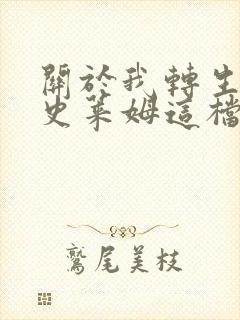 關於我轉生
史萊姆這檔
鷲尾美枝